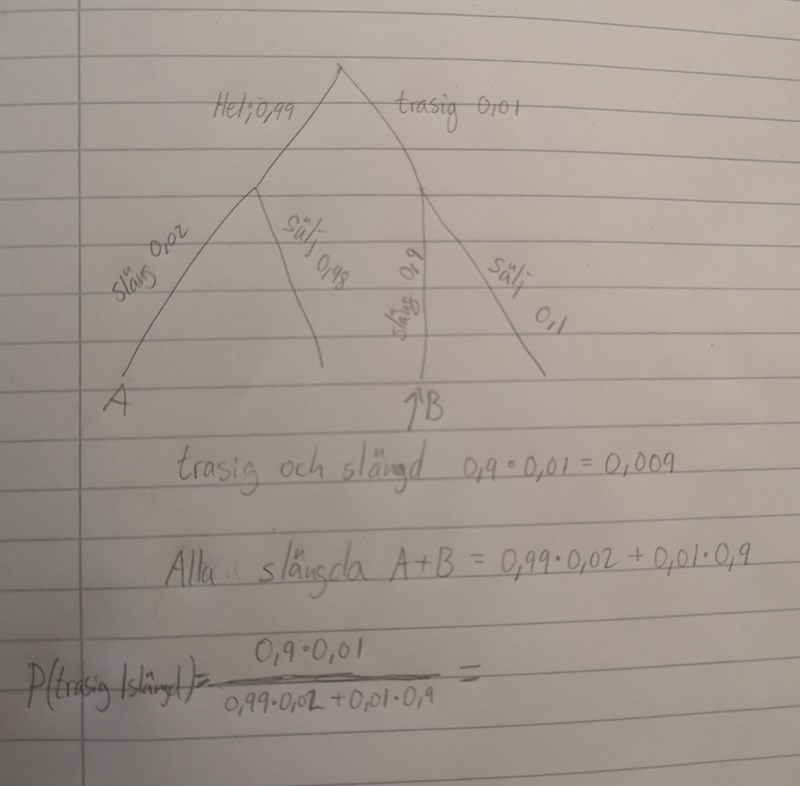 Hel; 0,99
trasig 0,01
släng 0,02
sälj 0,98
släng 0,9
sälj 0,1
A
↑B
trasig och slängd 0,9·0,01 = 0,009
Alla slängda A+B = 0,99·0,02 + 0,01·0,9
P(trasig | slängd) = 0,9·0,01 / 0,99·0,02 + 0,01·0,9 =